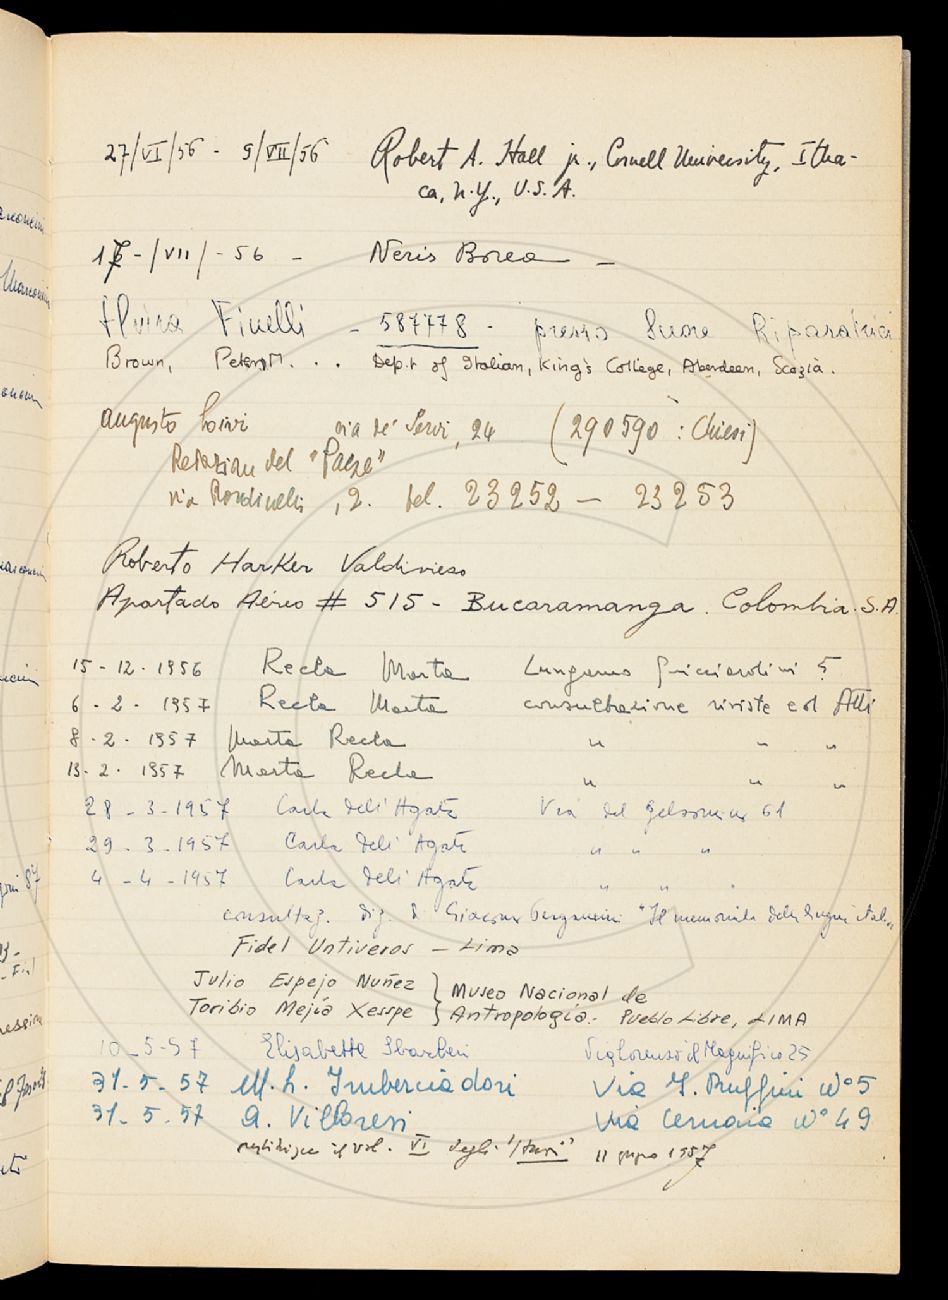 27/VI/56 - 9/VII/56 Robert A. Hall jr., Cornell University, Itha-
ca, N.Y., U.S.A.
17-/VII/-56 - Neris Borea -
Elvira Finelli - 587778 - presso Suore Riparatrici
Brown, Peter M. . . Dep.t of Italian, King's College, Aberdeen, Scozia.
augusto via de' Servi, 24 (290590 : Chiesi)
del "Paese"
via Rondinelli, 2. tel. 23252 — 23253
Roberto Harker Valdivieso
Apartado Aéreo # 515 - Bucaramanga. Colombia. S.A.
15 - 12 - 1956 Recla Marta Lungarno Guicciardini 5
6 - 2 - 1957 Recla Marta consultazione riviste ed Atti
8 - 2 - 1957 Marta Recla " " "
13 - 2 - 1957 Marta Recla " " "
28 - 3 - 1957 Carla Dell'Agata Via del Gelsomino 61
29 - 3 - 1957 Carla Dell'Agata " " "
4 - 4 - 1957 Carla Dell'Agata " " "
consultaz. diz. di Giacomo Pergamini "Il memoriale della lingua ital."
Fidel Untiveros - Lima
Julio Espejo Nuñez } Museo Nacional de
Toribio Mejía Xesspe } Antropología. Pueblo Libre, LIMA
10-5-57 Elisabetta Via Lorenzo il Magnifico 25
31-5-57 M. L. Imberciadori Via J. Ruffini N° 5
31-5-57 A. Villoresi Via Cernaia N° 49
il vol. VI degli "Studi" 11 giugno 1957